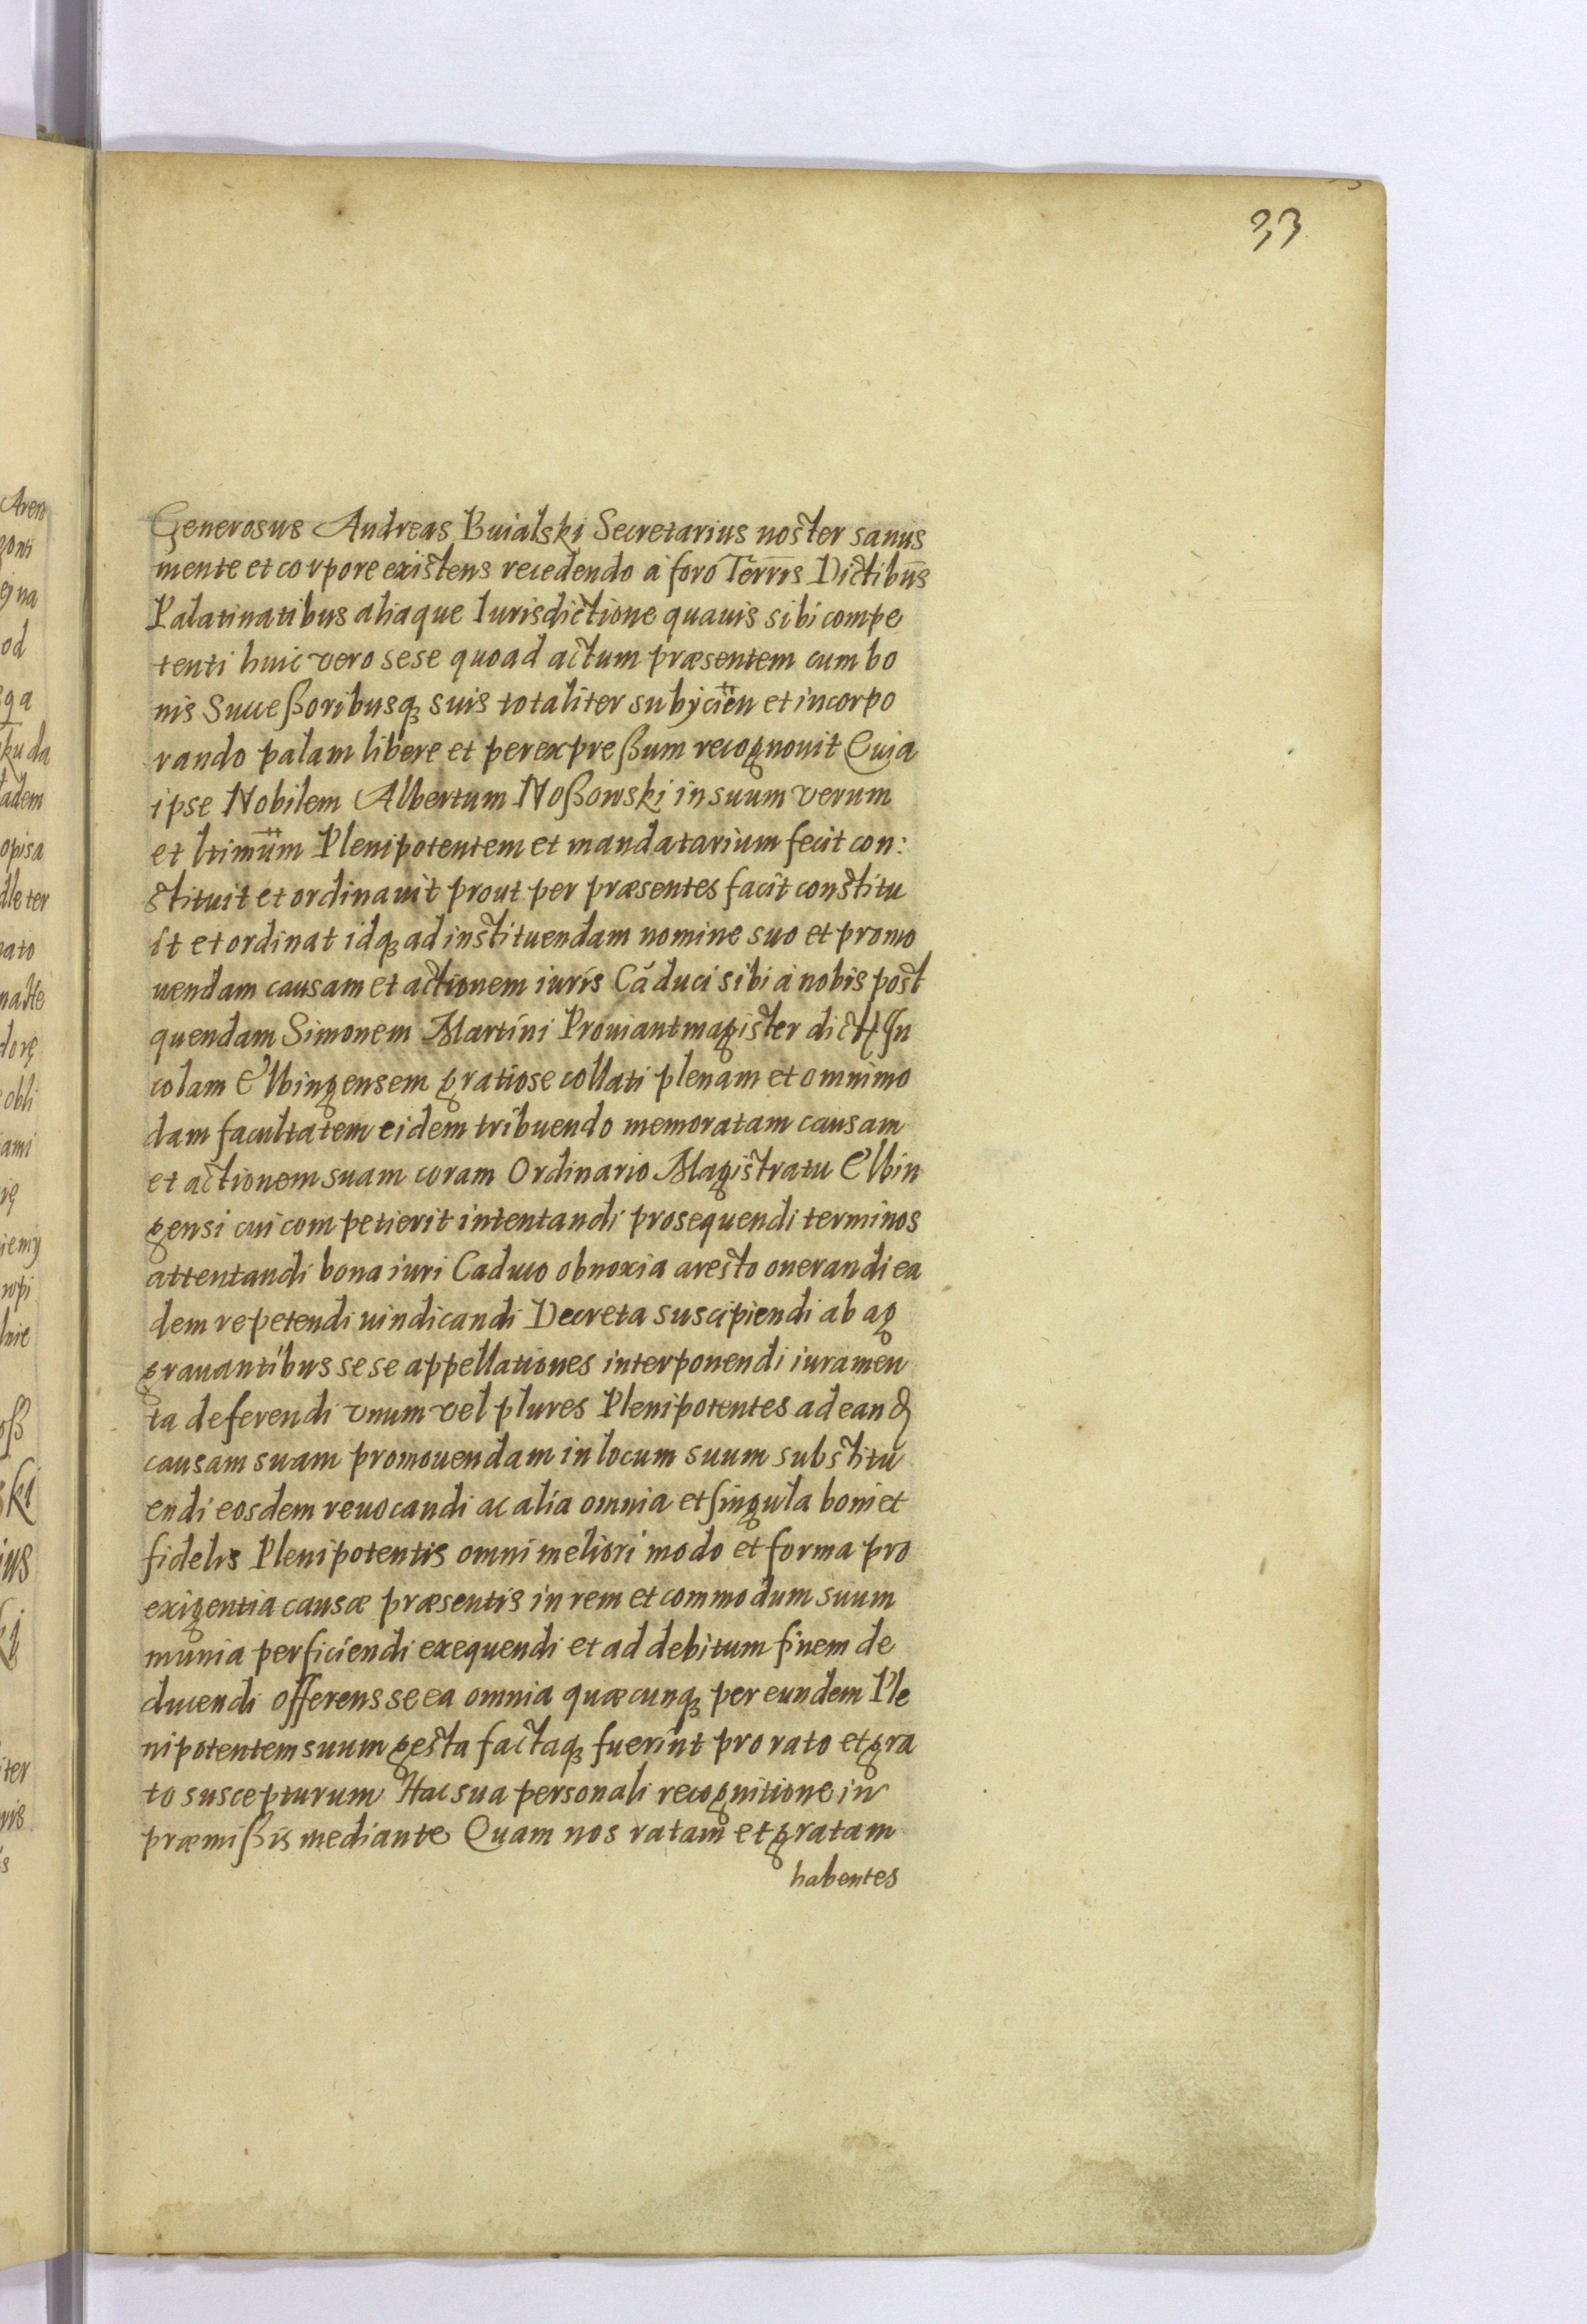 33
Generosus Andreas Buialski Secretarius noster sanus
mente et corpore existens recedendo à foro Terris Dictibus
Palatinatibus aliaque Iurisdictione quauis sibi compe
tenti huic vero sese quoad actum præsentem cum bo
nis Succeßoribusq suis totaliter subycien et incorpo
rando palam libere et per expreßum recognouit Quia
ipse Nobilem Albertum Noßowski in suum verum
et ltimum Plenipotentem et mandatarium fecit con:
stituit et ordinauit prout per præsentes facit constitu
it et ordinat idq ad instituendam nomine suo et promo
uendam causam et actionem iuris Caduci sibi à nobis post
quendam Simonem Martini Prouiantmagister dict In
colam Elbingensem gratiose collati plenam et omnimo
dam facultatem eidem tribuendo memoratam causam
et actionem suam coram Ordinario Magistratu Elbin
gensi cui competierit intentandi prosequendi terminos
attentandi bona iuri Caduco obnoxia aresto onerandi ea
dem repetendi uindicandi Decreta suscipiendi ab ag
grauantibus sese appellationes interponendi iuramen
ta deferendi vnum vel plures Plenipotentes ad eand
causam suam promouendam in locum suum substitu
endi eosdem reuocandi ac alia omnia et singula boni et
fidelis Plenipotentis omni meliori modo et forma pro
exigentia causæ præsentis in rem et commodum suum
munia perficiendi exequendi et ad debitum finem de
ducendi offerens se ea omnia quæcunq per eundem Ple
nipotentem suum gesta factaq fuerint pro rato et gra
to suscepturum Hac sua personali recognitione in
præmißis mediante Quam nos ratam et gratam
habentes